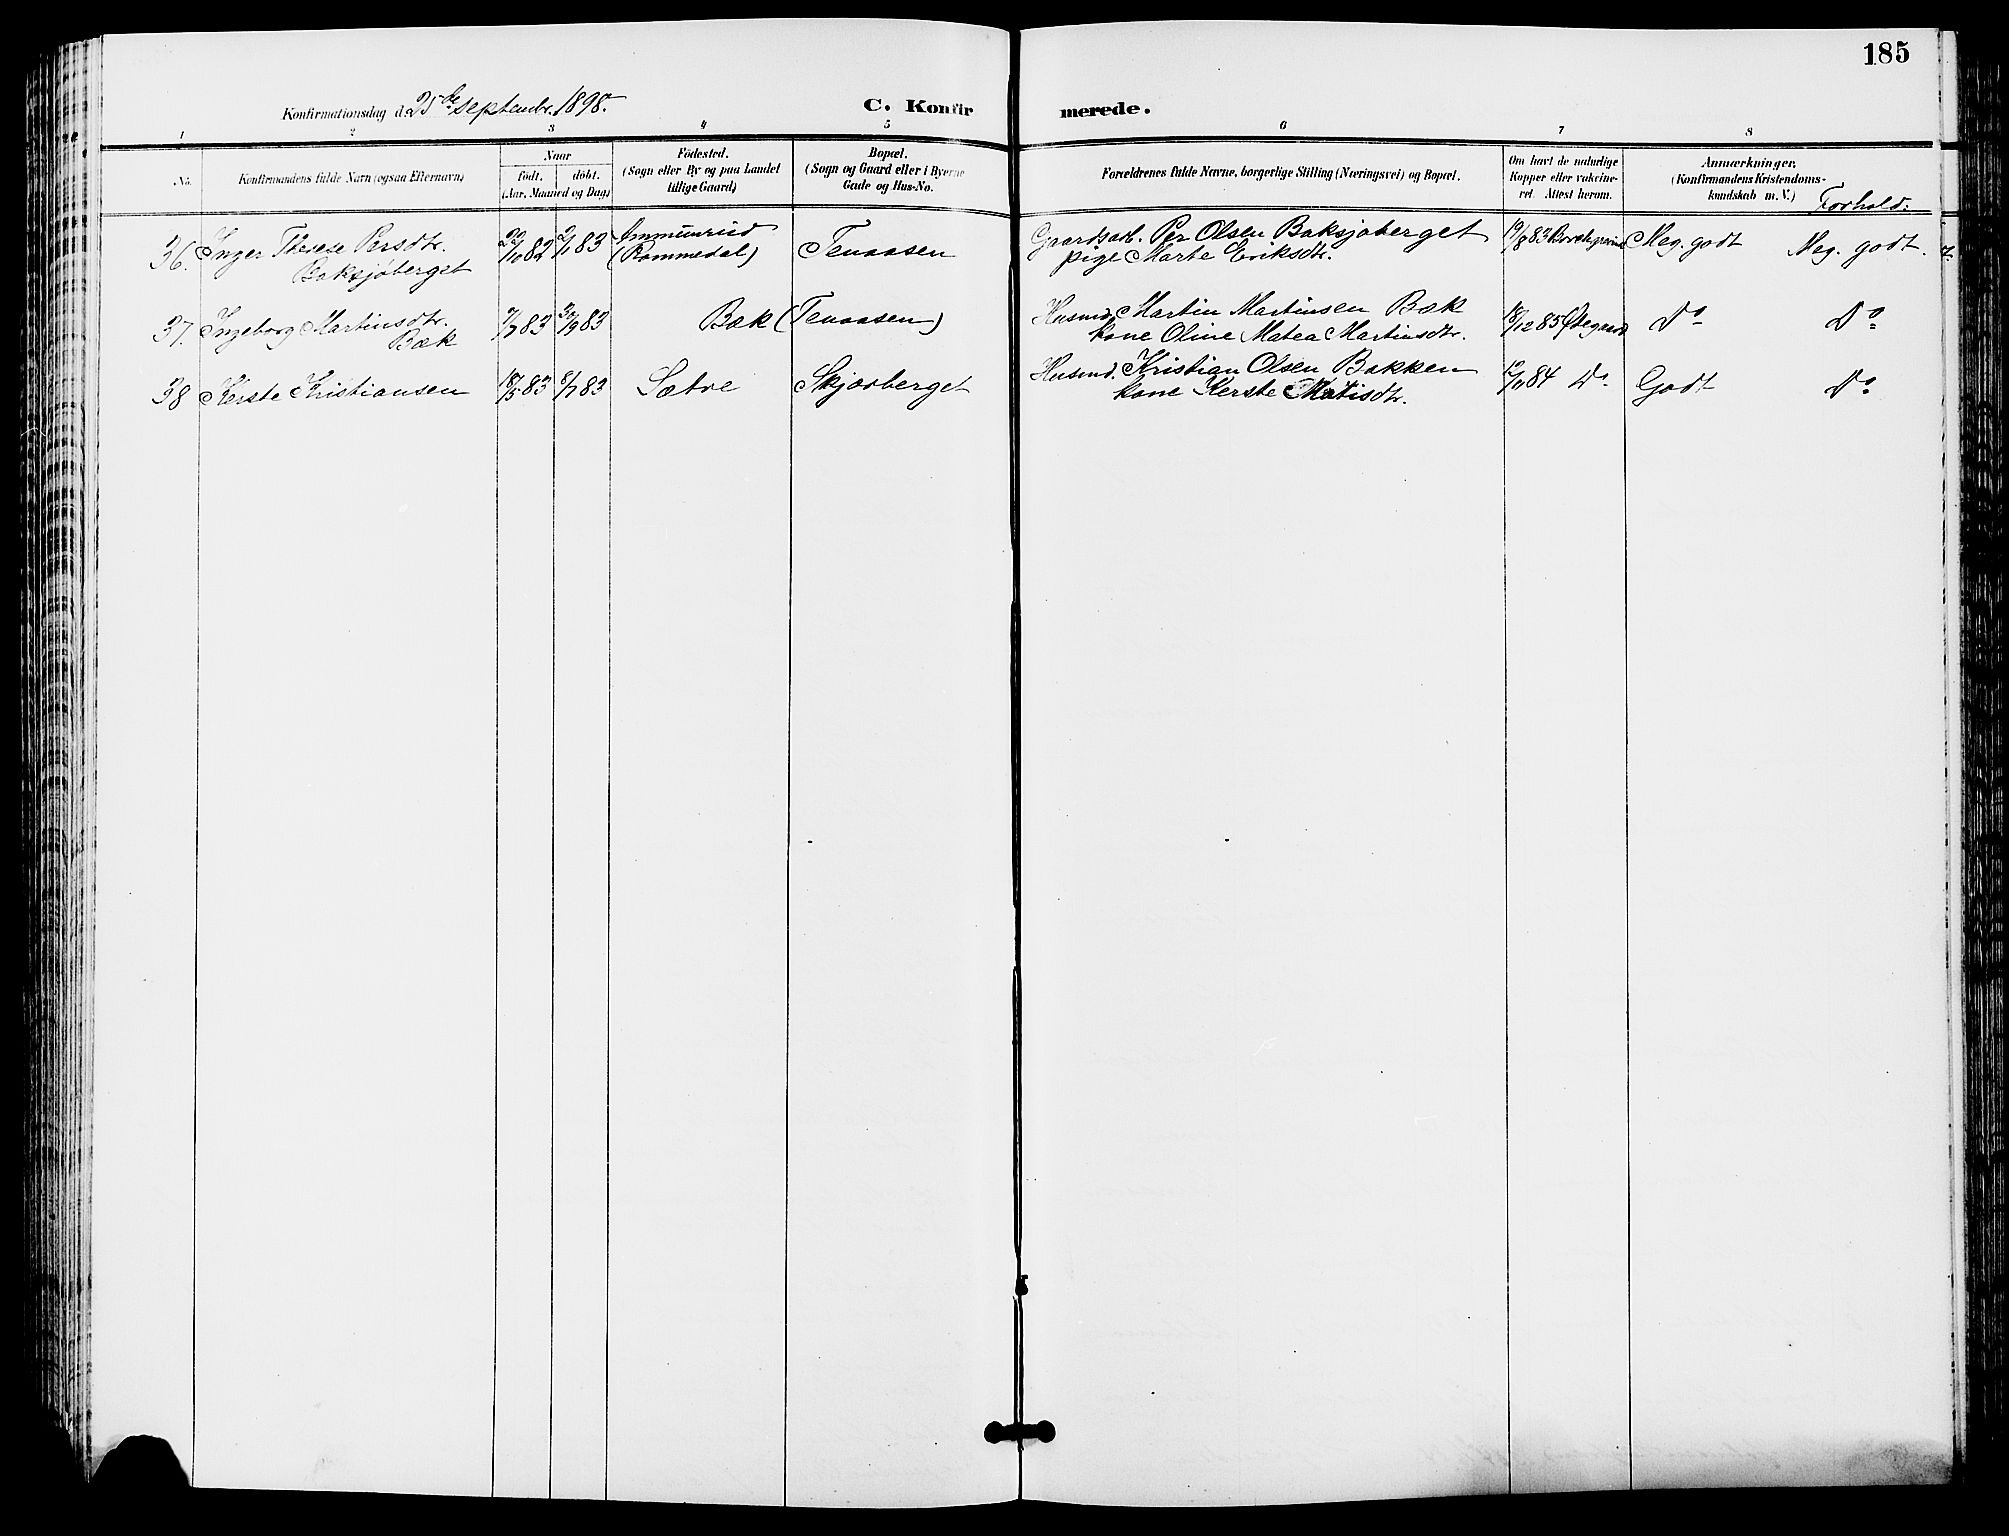 185
Konfirmationsdag d. 25de september 1898.
C. Konfirmerede.
1 2 3 4 5 6 7 8
No. Konfirmandens fulde Navn (ogsaa Efternavn) Naar født. døbt. (Aar, Maaned og Dag) Fødested. (Sogn eller By og paa Landet tillige Gaard) Bopæl. (Sogn og Gaard eller i Byerne Gade og Hus-No. Forældrenes fulde Navne, borgerlige Stilling (Næringsvei) og Bopæl. Om havt de naturlige Kopper eller vakcineret. Attest herom. Anmærkninger. (Konfirmandens Kristendomskundskab m. V.) Forhold:
36. Inger Therese Persdtr. 22/10 82 2/1 83 Ommunrud Tenaasen Gaardsarb. Per Olsen Baksjøberget 19/8 83 Meg. godt Meg. godt.
Baksjøberget (Rommedal) pige Marte Eriksdtr.
37. Ingeborg Martinsdtr. 7/7 83 30/9 83 Bæk (Tenaasen) Husmd. Martin Martinsen Bæk 18/12 85 Ødegaard Do Do
Bæk kone Oline Matea Martinsdtr.
38 Kerste Kristiansen 18/5 83 8/7 83 Sætre Skjærberget Husmd. Kristian Olsen Bakken 12/11 84 Do Godt Do
kone Kerste Matisdtr.